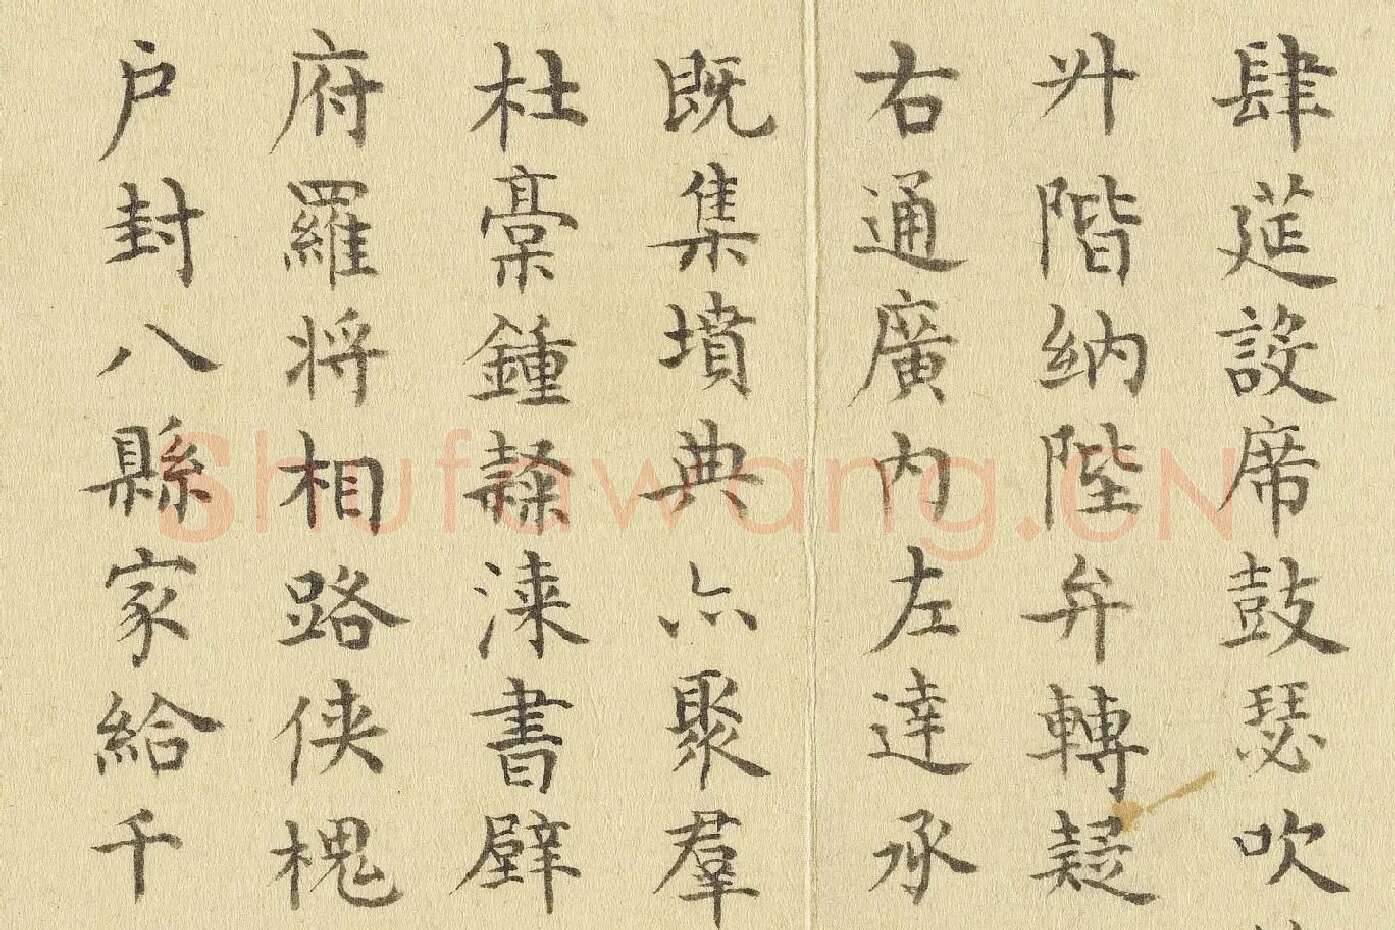 肆莚設席鼓瑟吹
升階納陛弁轉疑
右通廣内左達承
既集墳典亦聚羣
杜稾鍾隸漆書壁
府羅将相路侠槐
户封八縣家給千
Shufawang.CN